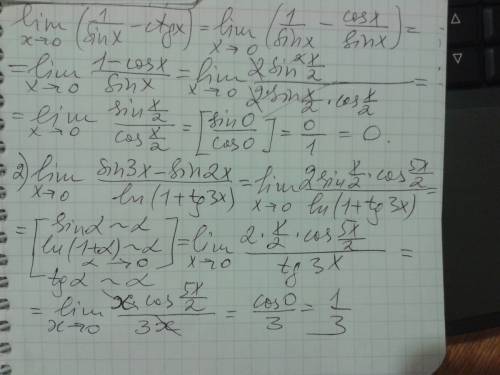 lim x→0 (1/sinx − ctgx) = lim x→0 (1/sinx − cosx/sinx) =
= lim x→0 (1−cosx)/sinx = lim x→0 (2sin² x/2)/(2sin x/2 · cos x/2) =
= lim x→0 (sin x/2)/(cos x/2) = [sin0/cos0] = 0/1 = 0.
2) lim x→0 (sin3x−sin2x)/(ln(1+tg3x)) = lim x→0 (2sin x/2 · cos 5x/2)/(ln(1+tg3x)) =
= [sinα~α
ln(1+α)~α
α→0
tgα~α] = lim x→0 (2·x/2 · cos 5x/2)/(tg3x) =
= lim x→0 (x·cos 5x/2)/(3x) = cos0/3 = 1/3